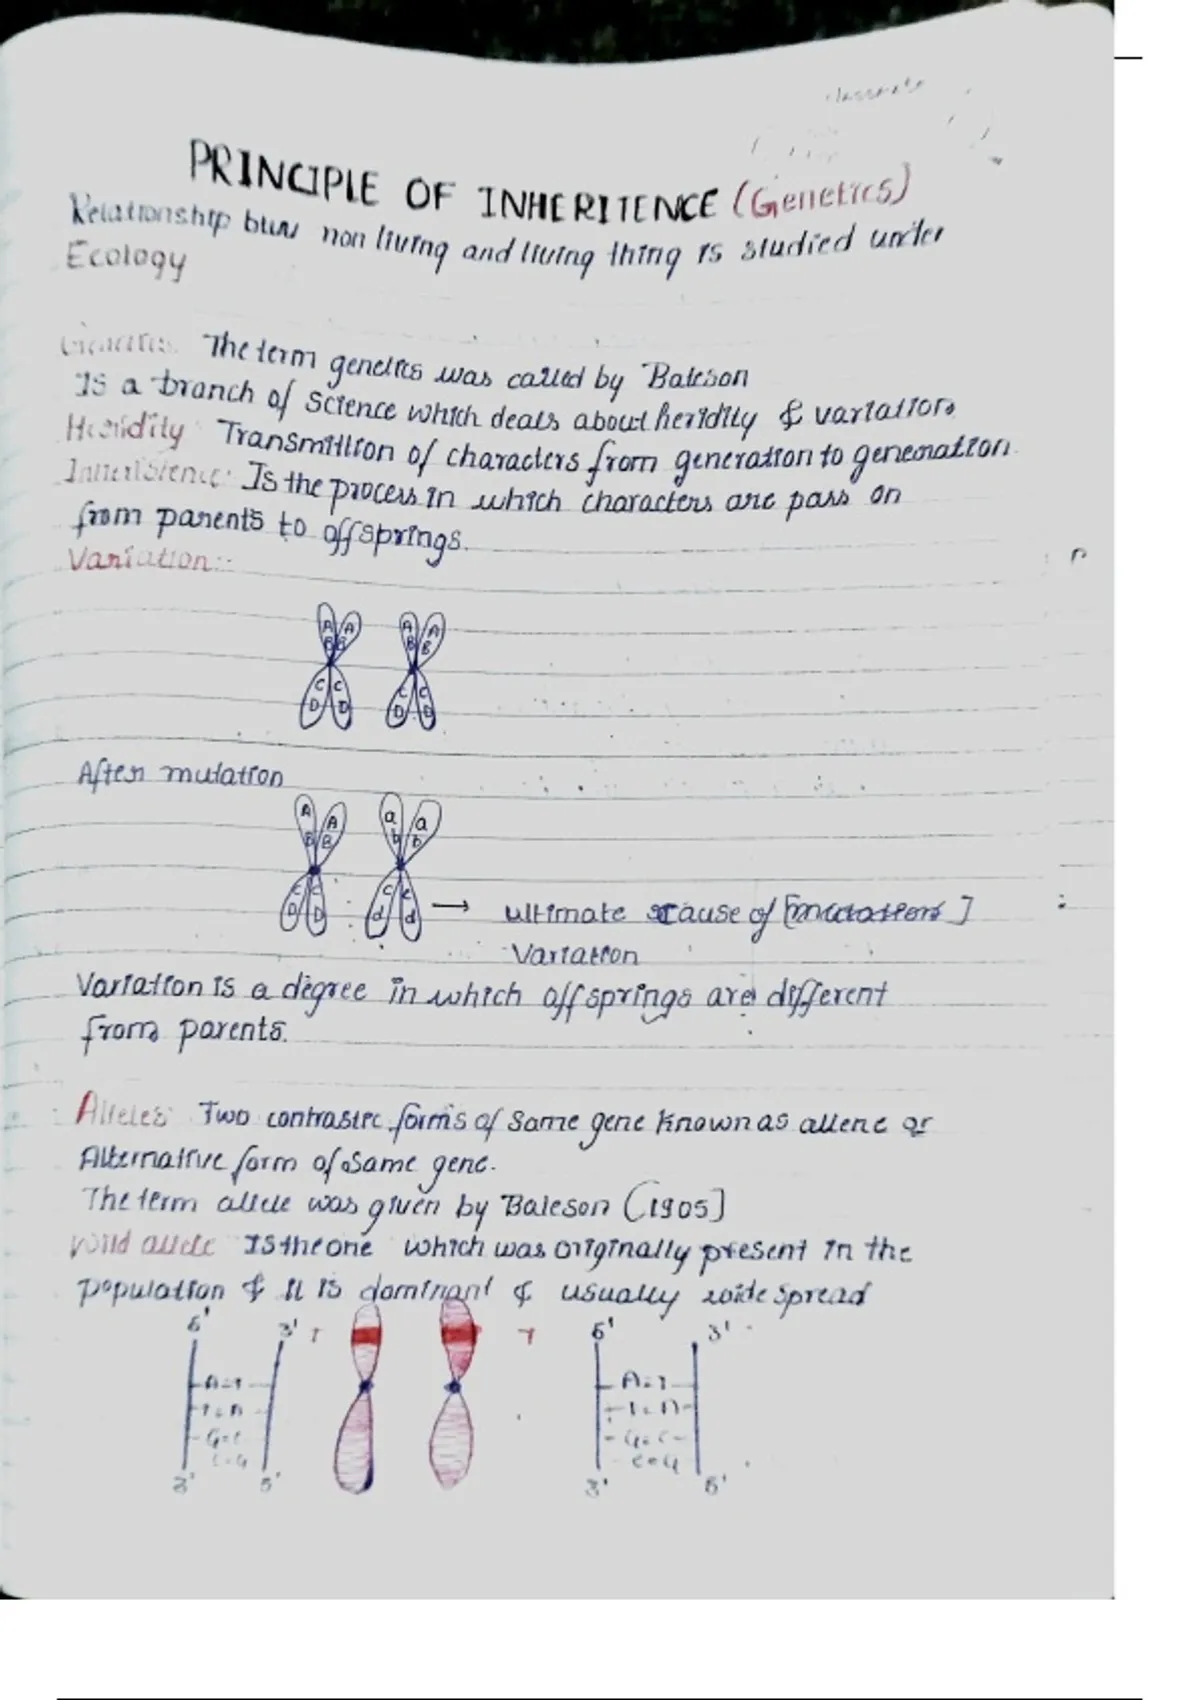 classmate
PRINCIPLE OF INHERITENCE (Genetics)
Relationship btw non living and living thing is studied under
Ecology
Genetics: The term genetics was called by Bateson
Is a branch of science which deals about heridity & variation
Heridity: Transmittion of characters from generation to generation
Inheritence: Is the process in which characters are pass on
from parents to offsprings.
Variation:-
A A A A
B B B B
C C C C
D D D D
After mutation
A A a a
B B b b
C C c c
D D d d → ultimate cause of [mutation]
Variation
Variation is a degree in which offsprings are different
from parents.
Alleles: Two contrastic forms of same gene known as allene or
Alternative form of same gene.
The term allele was given by Bateson (1905]
Wild allele Is the one which was originally present in the
population & it is dominant & usually wide spread
5' 3' T T 5' 3'
A=T A=T
T=A T=A
G=C G=C
C=G C=G
3' 5' 3' 5'